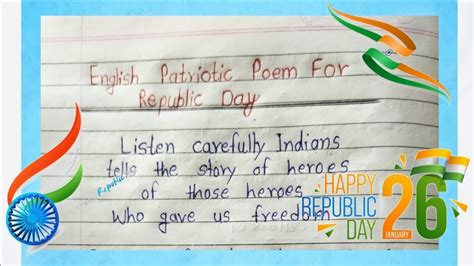 English Patriotic Poem For
Republic Day
Listen carefully Indians
tells the story of heroes
Republic
of those heroes
who gave us freedom
HAPPY
REPUBLIC
DAY
26
JANUARY